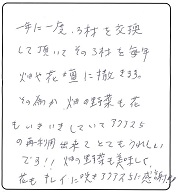 一年に一度、ろ材を交換
して頂いてそのろ材を毎年
畑や花壇に撒きます。
その為か畑の野菜も花
もいきいきしていてアクアス5
の再利用出来てとてもうれしい
です!! 畑の野菜も美味しく、
花もキレイに咲きアクアス5に感謝!!